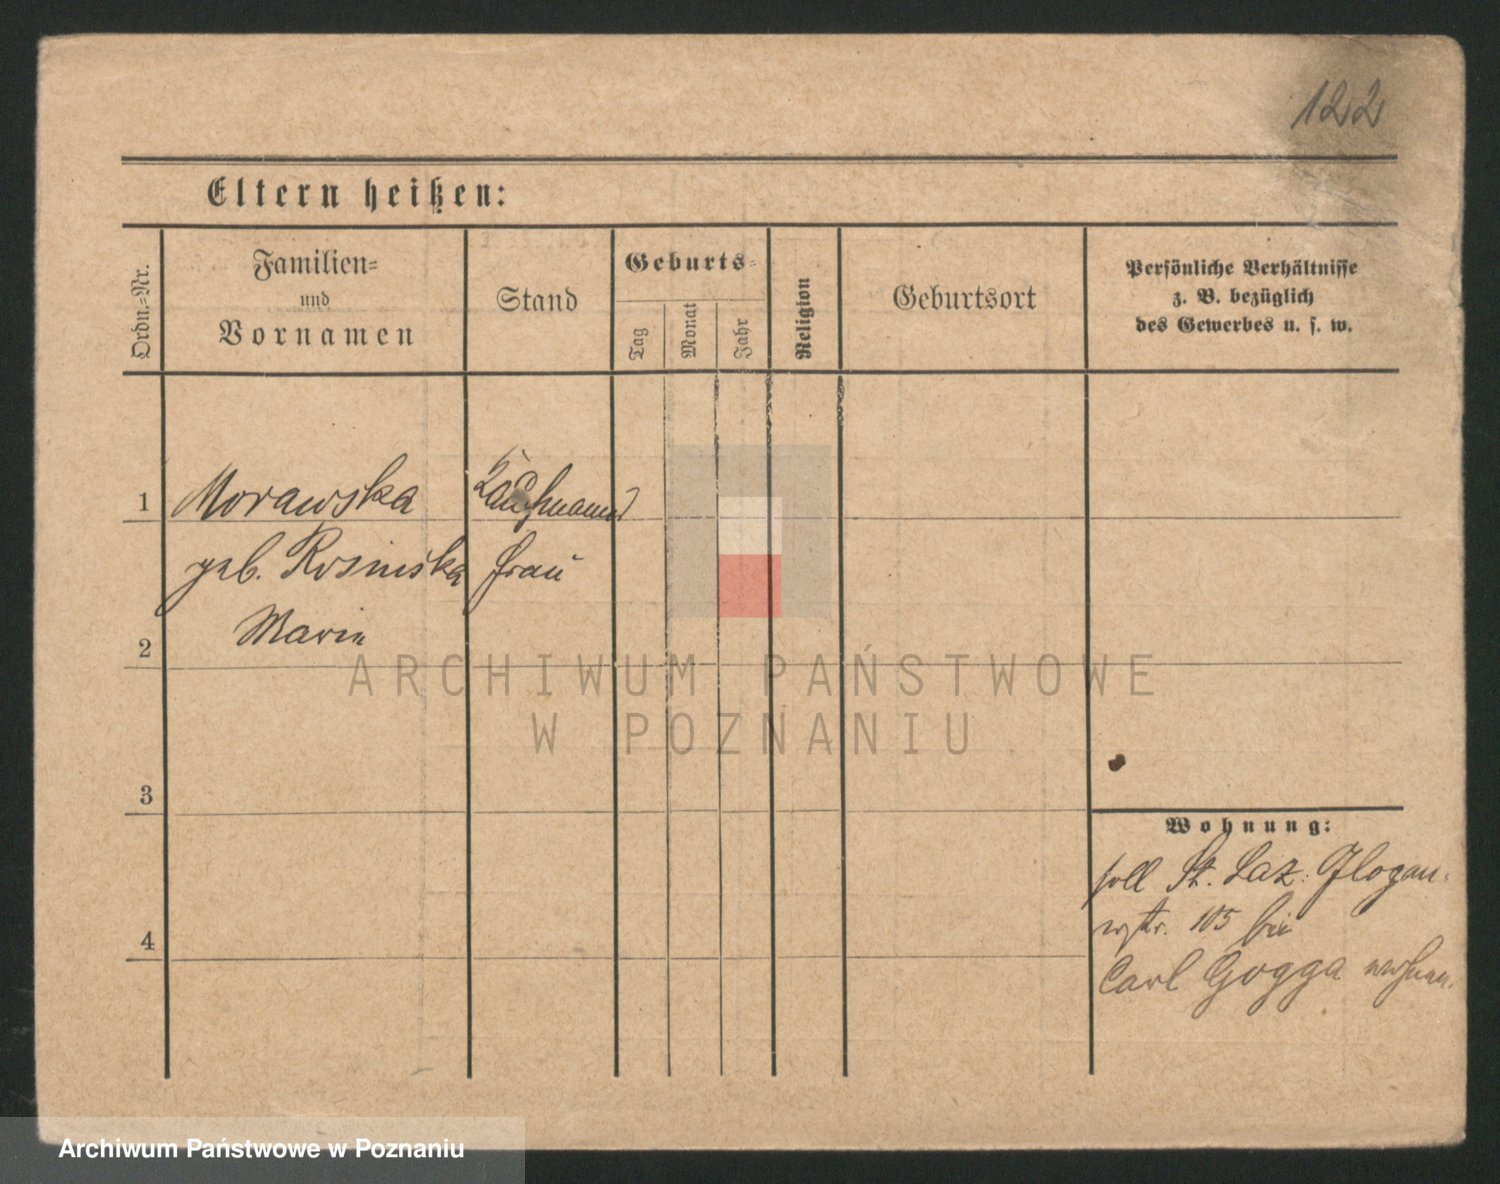 122
Eltern heißen:
Ordn.=Nr.
Familien=
und
Vornamen
Stand
Geburts=
Tag
Monat
Jahr
Religion
Geburtsort
Persönliche Verhältnisse
z. B. bezüglich
des Gewerbes u. s. w.
1
Morawska
Kaufmanns
geb. Rosinska
frau
2
Marie
3
4
Wohnung:
soll St. Laz: Glogau.
str. 105 bei
Carl Gogga
ARCHIWUM PAŃSTWOWE
W POZNANIU
Archiwum Państwowe w Poznaniu